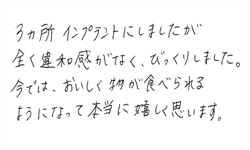 3ヵ所インプラントにしましたが
全く違和感がなく、びっくりしました。
今では、おいしく物が食べられる
ようになって本当に嬉しく思います。